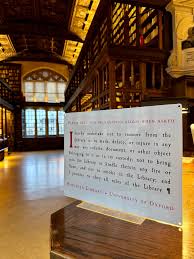 I hereby undertake not to remove from the
Library, or to mark, deface, or injure in any
way, any volume, document, or other object
belonging to it or in its custody; not to bring
into the Library or kindle therein any fire or
flame, and not to smoke in the Library; and
I promise to obey all rules of the Library. ¶
Bodleian Libraries • University of Oxford